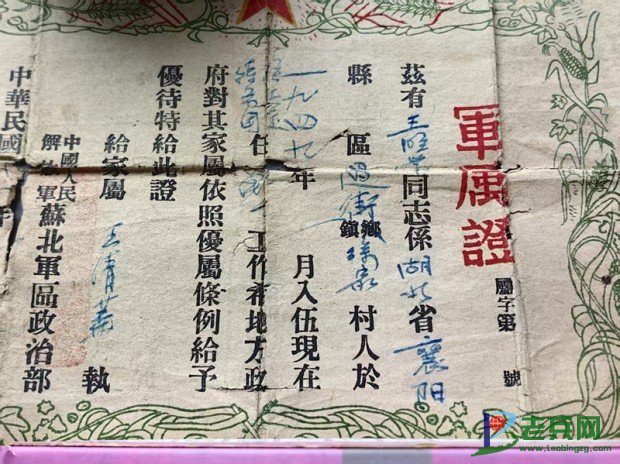 軍属證
屬字第 號
茲有王 同志係湖北省襄阳
縣 區 街 鄉鎮 村人於
一九四九年 月入伍現在
任 工作希地方政
府對其家屬依照優屬條例給予
優待特給此證
給家屬 王清 執
中國人民解放軍蘇北軍區政治部
中華民國 年
老兵网
www.laobingzg.com